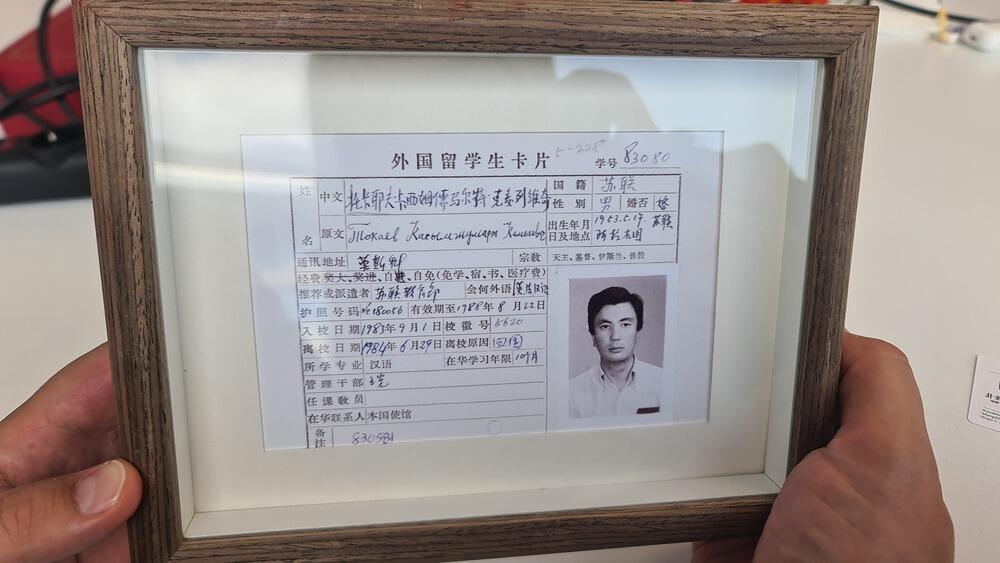 外国留学生卡片 5-228 学号 83080
姓名 中文 托卡耶夫·卡西姆·若马尔特·克麦列维奇 国籍 苏联
性别 男 婚否
原文 Токаев Касымжумарт Кемелевич 出生年月日及地点 1953.5.17. 苏联 阿拉木图
通讯地址 莫斯科 宗教 天主、基督、伊斯兰、佛教
经费 奖大、奖进、自进、自免(免学、宿、书、医疗费)
推荐或派遣者 苏联教育部 会何外语
护照号码 №180056 有效期至1988年8月22日
入校日期 1983年9月1日 校徽号 5620
离校日期 1984年6月29日 离校原因 回国
所学专业 汉语 在华学习年限 10个月
管理干部
任课教员
在华联系人 本国使馆
备注 830581